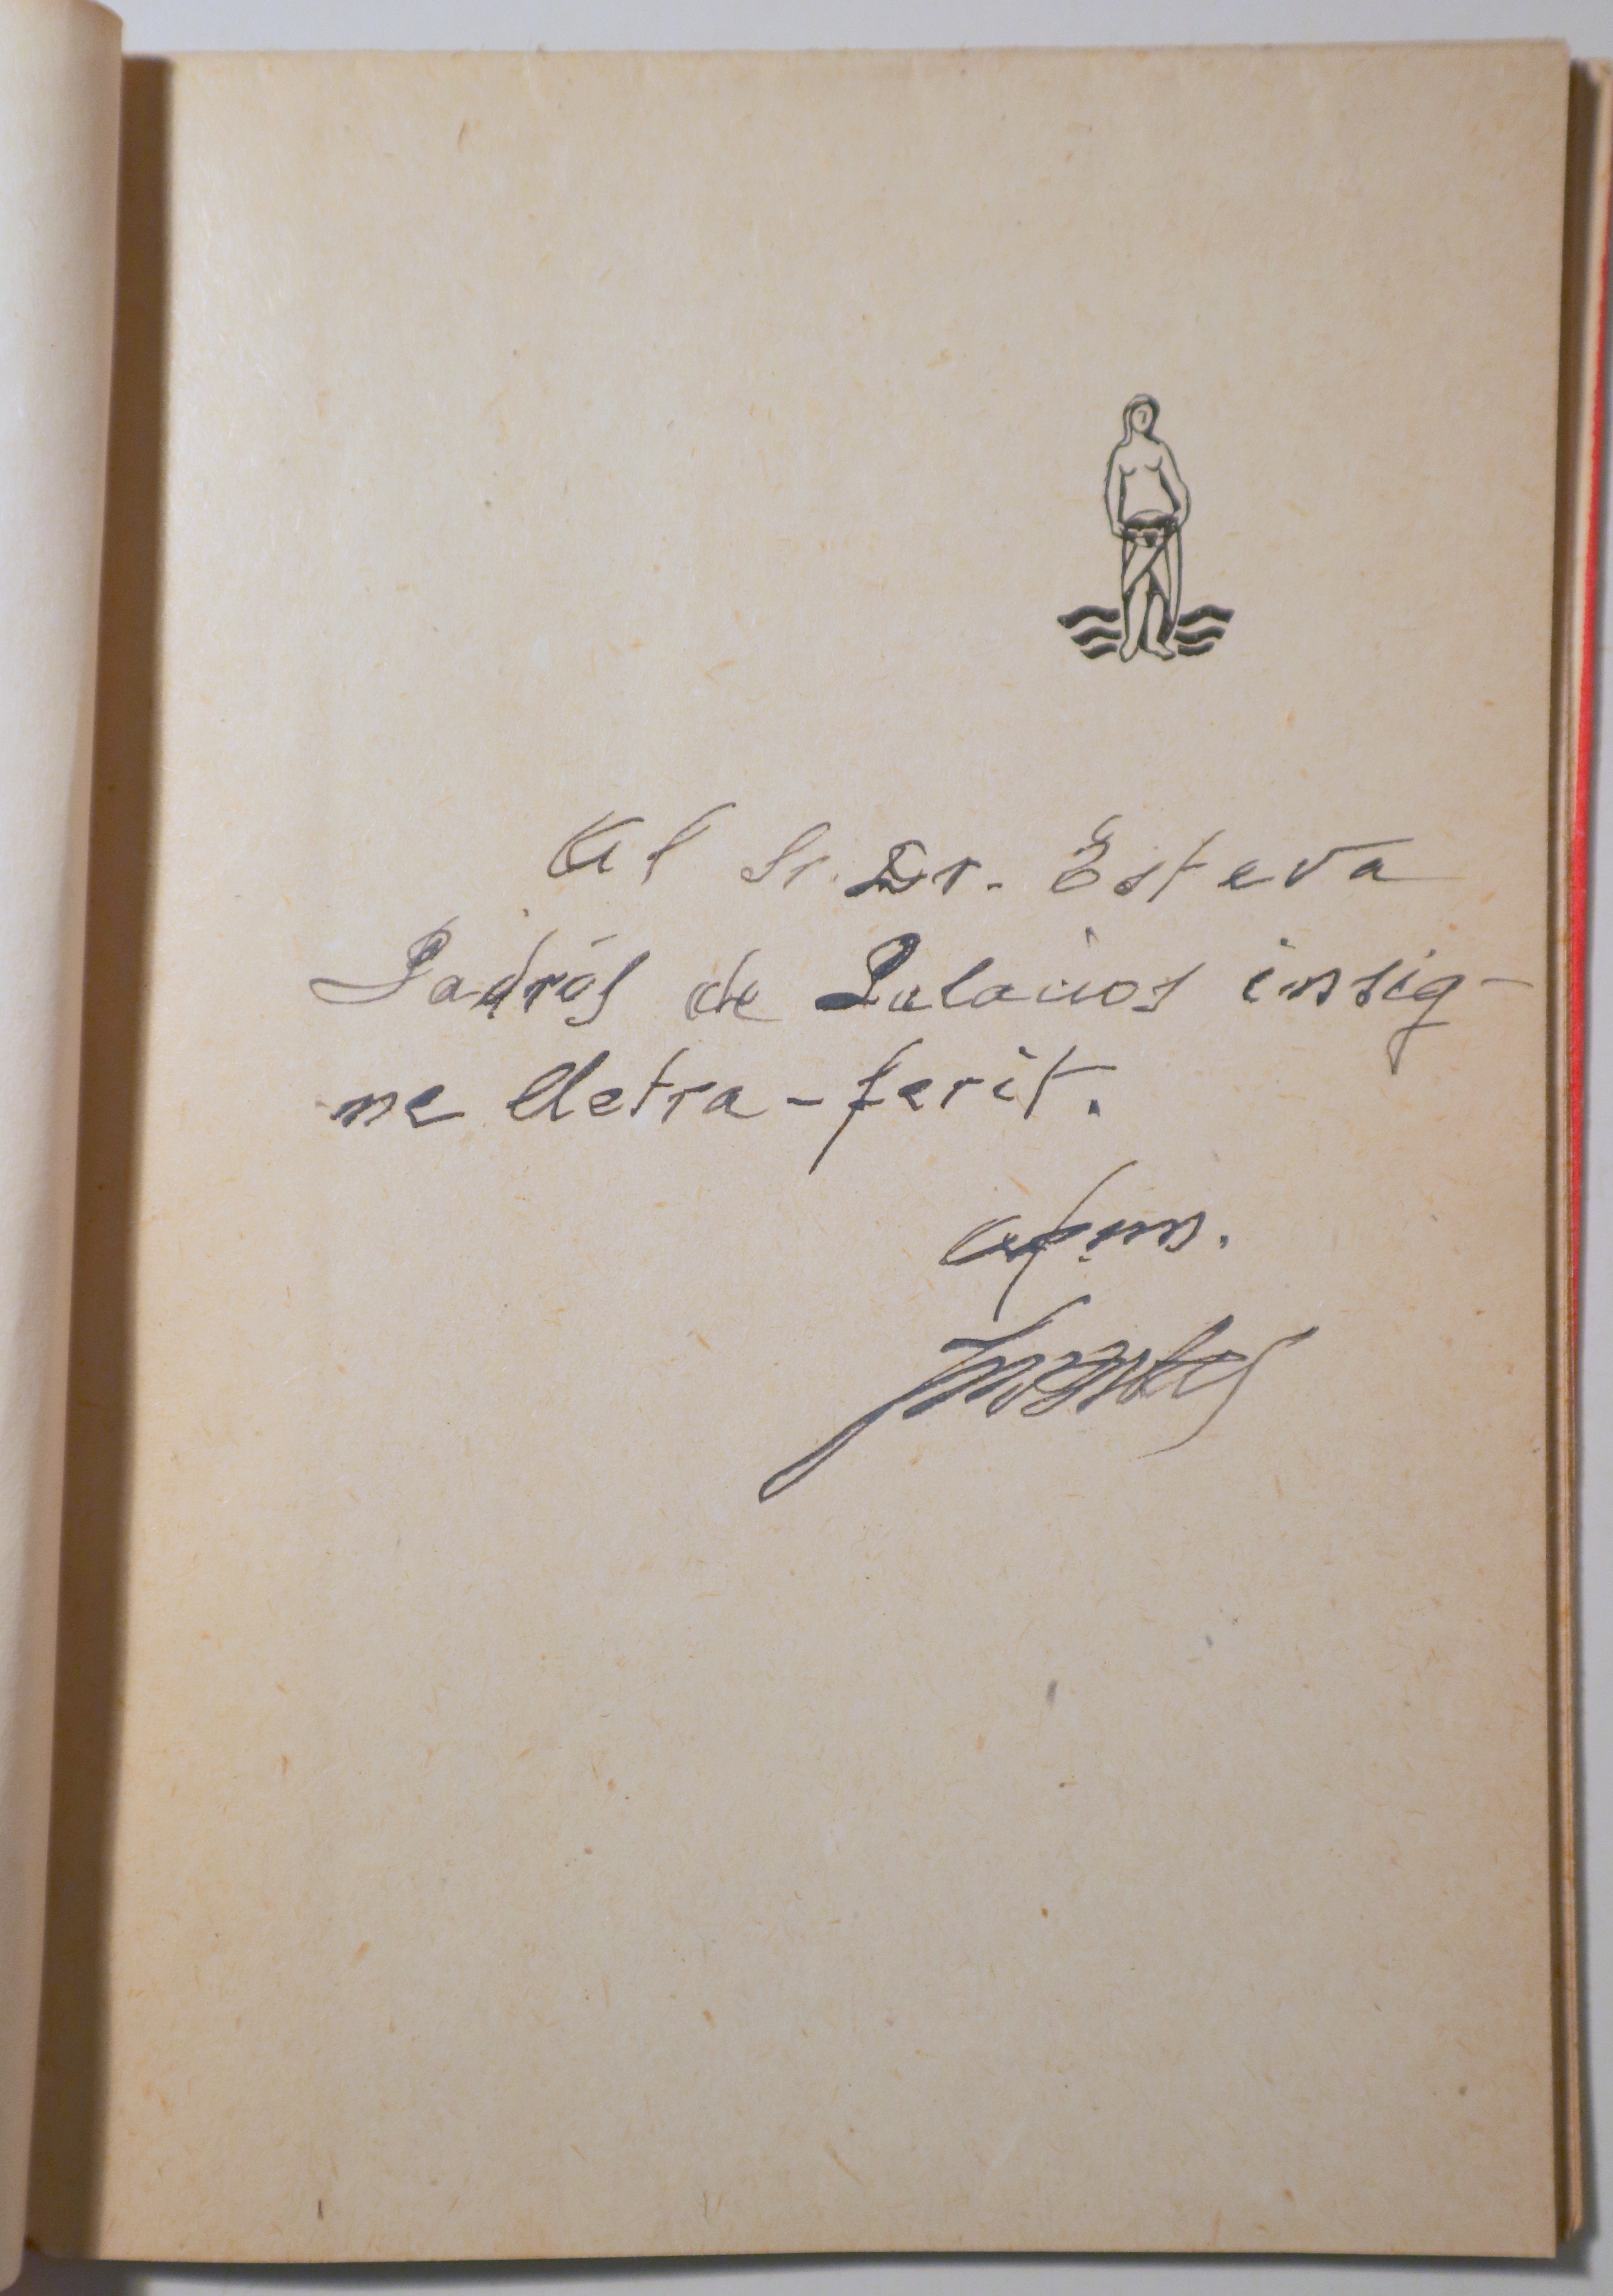 Al Sr. Dr. Esteva
Padrós de Palacios insig-
ne lletra-ferit.
afm.